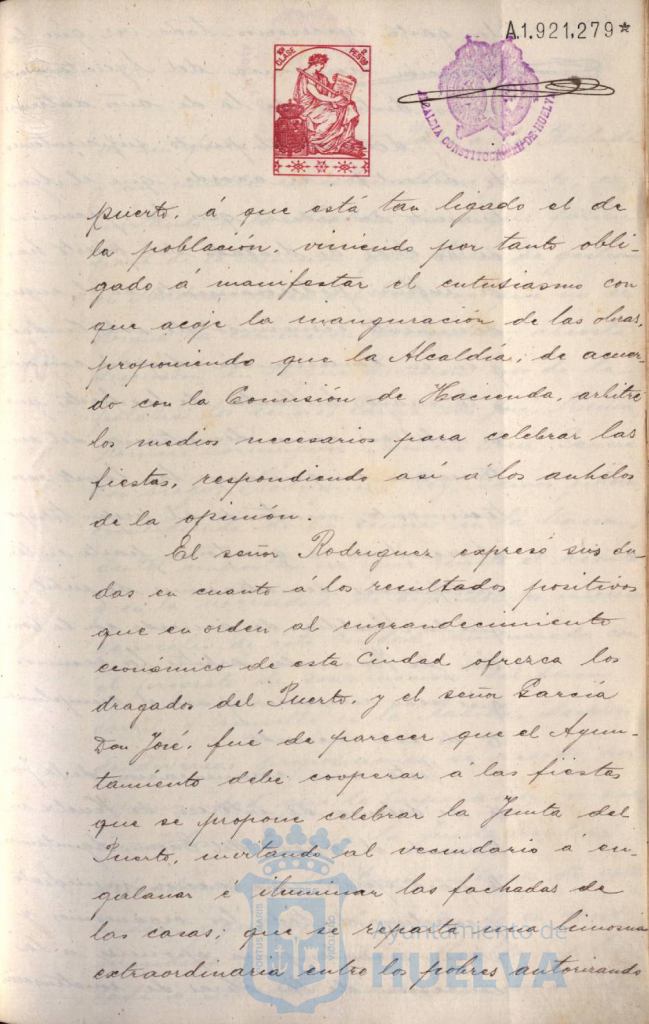 A.1.921.279*
CLASE
PESETAS
ALCALDIA CONSTITUCIONAL DE HUELVA
puerto, á que está tan ligado el de
la población, viniendo por tanto obli-
gado á manifestar el entusiasmo con
que acoje la inauguración de las obras,
proponiendo que la Alcaldía, de acuer-
do con la Comisión de Hacienda, arbitre
los medios necesarios para celebrar las
fiestas, respondiendo así á los anhelos
de la opinión.
El señor Rodriguez expresó sus du-
das en cuanto á los resultados positivos
que en orden al engrandecimiento
económico de esta Ciudad ofrezca los
dragados del Puerto, y el señor García
Don José, fué de parecer que el Ayun-
tamiento debe cooperar á las fiestas
que se propone celebrar la Junta del
Puerto, invitando al vecindario á en-
galanar é iluminar las fachadas de
las casas; que se reparta una limosna
extraordinaria entre los pobres autorizando
PORTUS MARIS
Ayuntamiento de
HUELVA